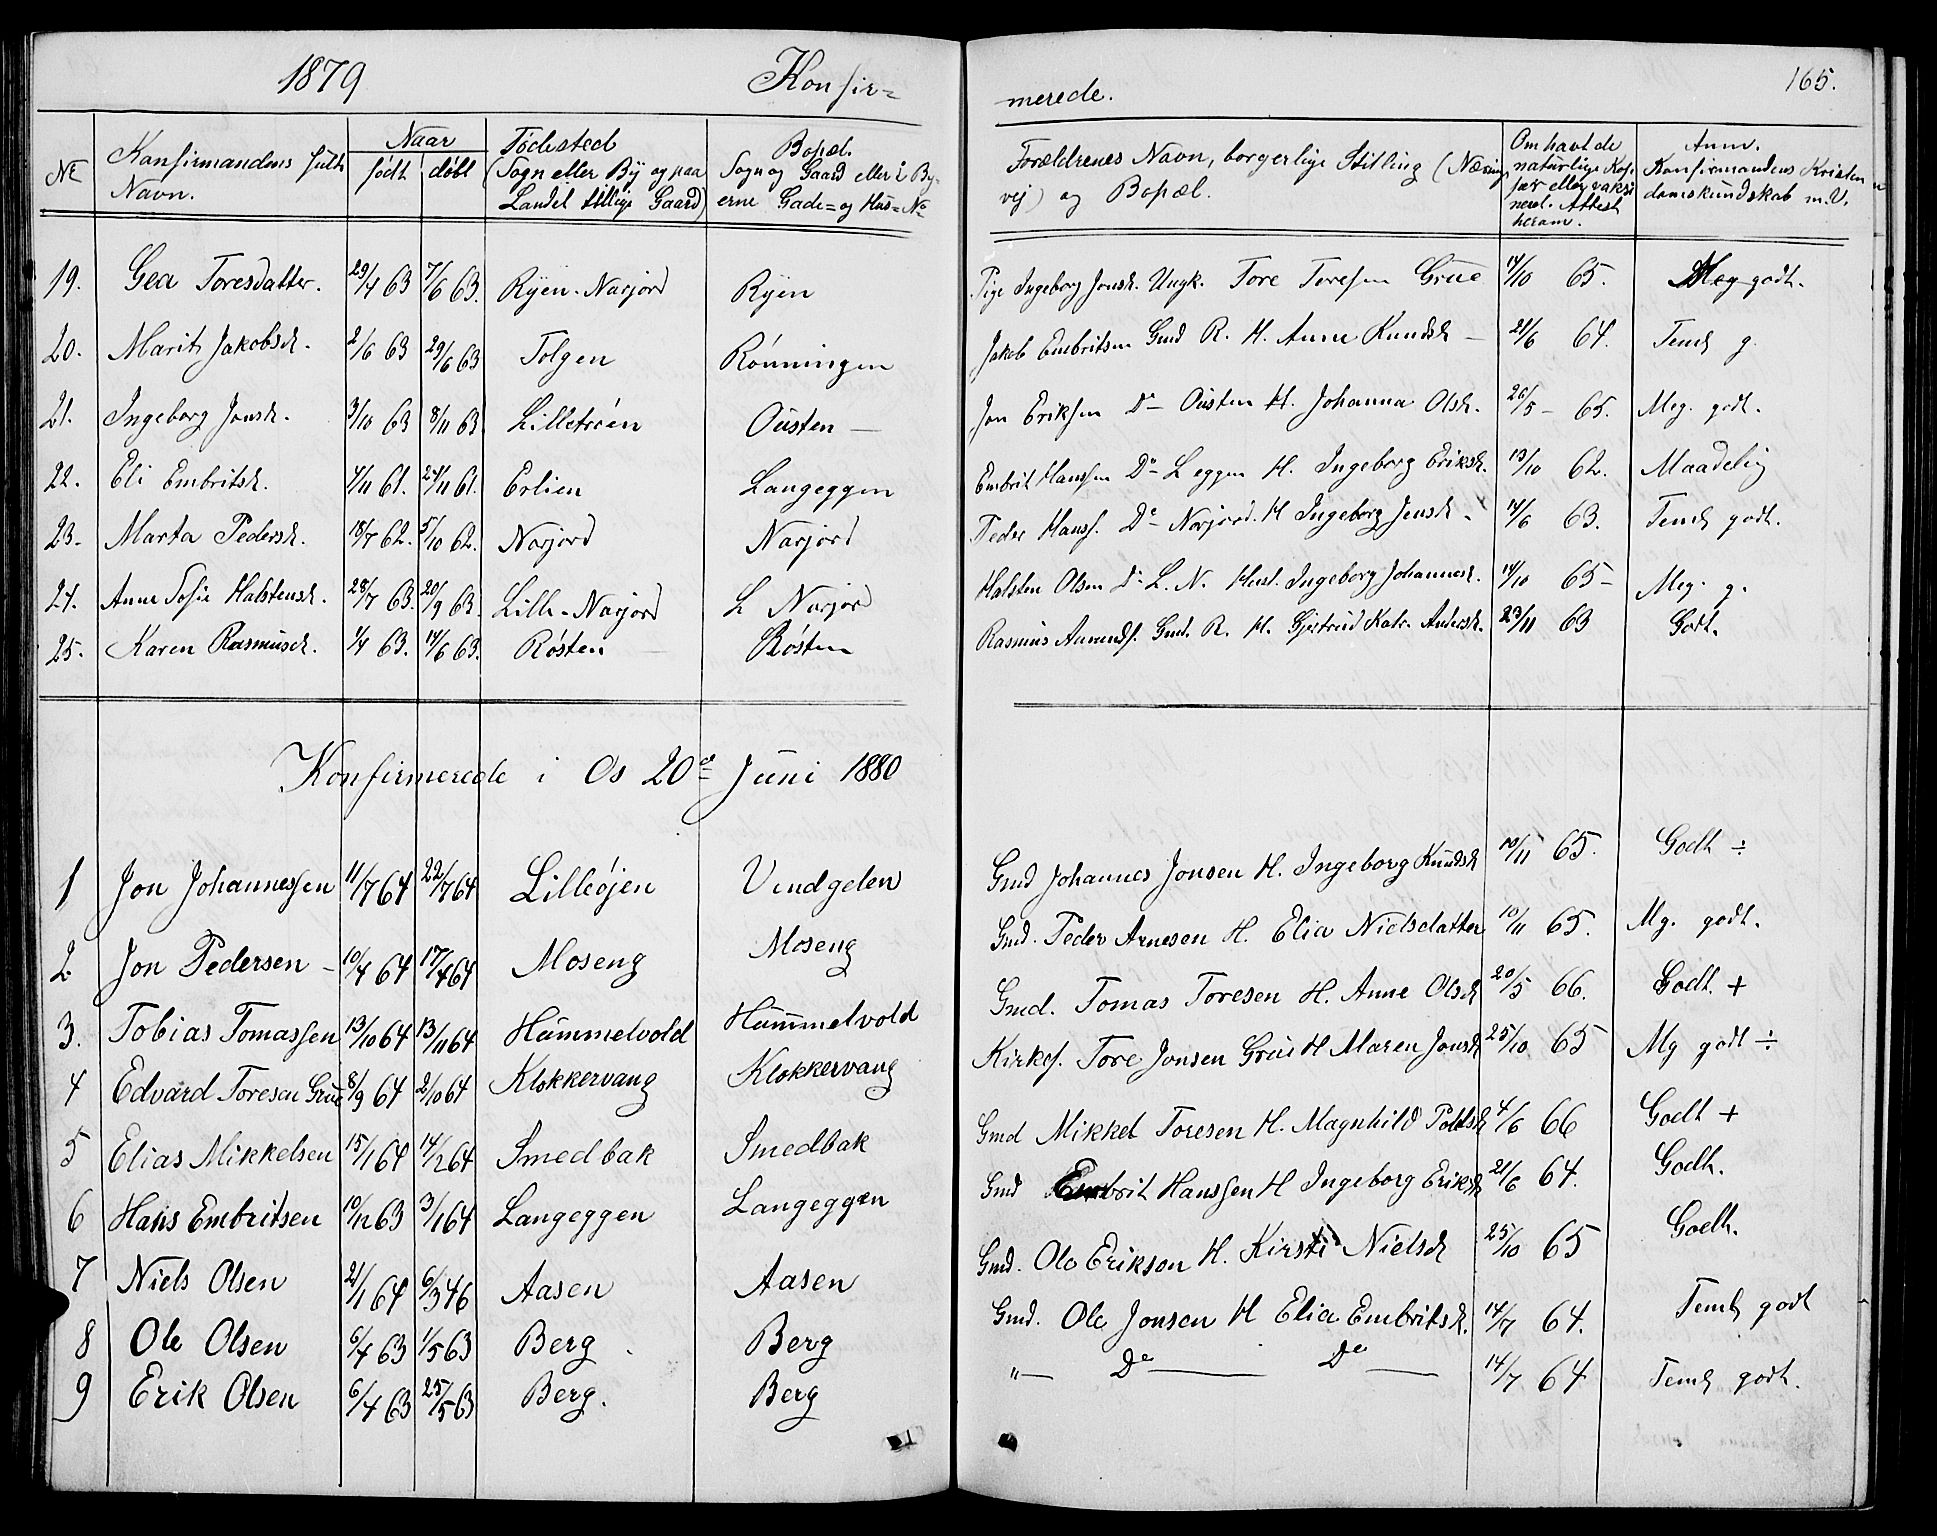 1879 Konfir=
merede. 165.
No Konfirmandens fulde Navn. Naar født døbt Fødested (Sogn eller By og paa Landet tillige Gaard) Bopæl. Sogn og Gaard eller i Byerne Gade= og Hus=No
Forældrenes Navn, borgerlige Stilling (Nærings vej) og Bopæl. Om havt de naturlige Kopper eller vaksineret. Attest herom. Anm. Konfirmandens Kristendomskundskab m.V.
19. Gea Toresdatter. 29/4 63 7/6 63. Ryen-Narjord Ryen Pige Ingeborg Jonsd. Ungk. Tore Toresen Grue 14/10 65. Meg godt.
20. Marit Jakobsd. 2/6 63 29/6 63 Tolgen Rønningen Jakob Embritsen Gmd R. H. Anne Knudsd — 21/6 64. Teml g.
21. Ingeborg Jonsd. 3/10 63 8/11 63 Lilletrøen Ousten — Jon Eriksen Do — Ousten H. Johanna Olsd. 26/5 — 65. Meg. godt.
22. Eli Embritsd. 4/11 61. 24/11 61. Erlien Langeggen Embrit Hansen Do — L eggen H. Ingeborg Eriksd. 13/10 62. Maadelig
23. Marta Pedersd. 18/7 62. 5/10 62. Narjord Narjord Peder Hans. Do — Narjord. H Ingeborg Jensd — 14/6 63. Teml godt.
24. Anne Sofie Halstensd. 28/7 63. 20/9 63. Lille-Narjord L Narjord Halsten Olsen Do L. N. Hust. Ingeborg Johannesd. 14/10 65 — Meg. g.
25. Karen Rasmusd. 1/4 63. 14/6 63. Røsten Røsten Rasmus Aamunds. Gmd. R. H. Gjertrud Katr. Andersd. 23/11 63 Godt.
Konfirmerede i Os 20de Juni 1880
1 Jon Johannessen 11/7 64 22/7 64 Lilleøjen Vendgelen Gmd Johannes Jonsen H. Ingeborg Knudsd 10/11 65. Godt ÷
2. Jon Pedersen — 10/4 64 17/4 64 Moseng Moseng Gmd. Peder Arnesen H. Elia Nielsdatter 10/11 65. Mg. godt.
3. Tobias Tomassen 13/10 64 13/11 64 Hummelvold Hummelvold Gmd. Tomas Toresen H. Anne Olsd 20/5 66. Godt +
4 Edvard Toresen Grue 8/9 64 2/10 64 Klokkervang Klokkervang Kirkes. Tore Jonsen Grue H Maren Jonsd 25/10 65 Mg godt ÷
5 Elias Mikkelsen 15/1 64 14/2 64 Smedbak Smedbak Gmd Mikkel Toresen H. Magnhild Poulsd 4/6 66 Godt +
6 Hans Embritsen 10/12 63 3/1 64 Langeggen Langeggen Gmd Embrit Hanssen H Ingeborg Eriksd 21/6 64. Godt.
7 Niels Olsen 2/1 64 6/3 46 Aasen Aasen Gmd. Ole Erikson H. Kirsti Nielsd 25/10 65 Godt.
8 Ole Olsen 6/4 63 1/5 63 Berg. Berg Gmd. Ole Jonsen H Elia Embritsd. 14/7 64. Teml godt
9 Erik Olsen 6/4 63 25/5 63 Berg. Berg "— Do — Do — 14/7 64 Teml godt.